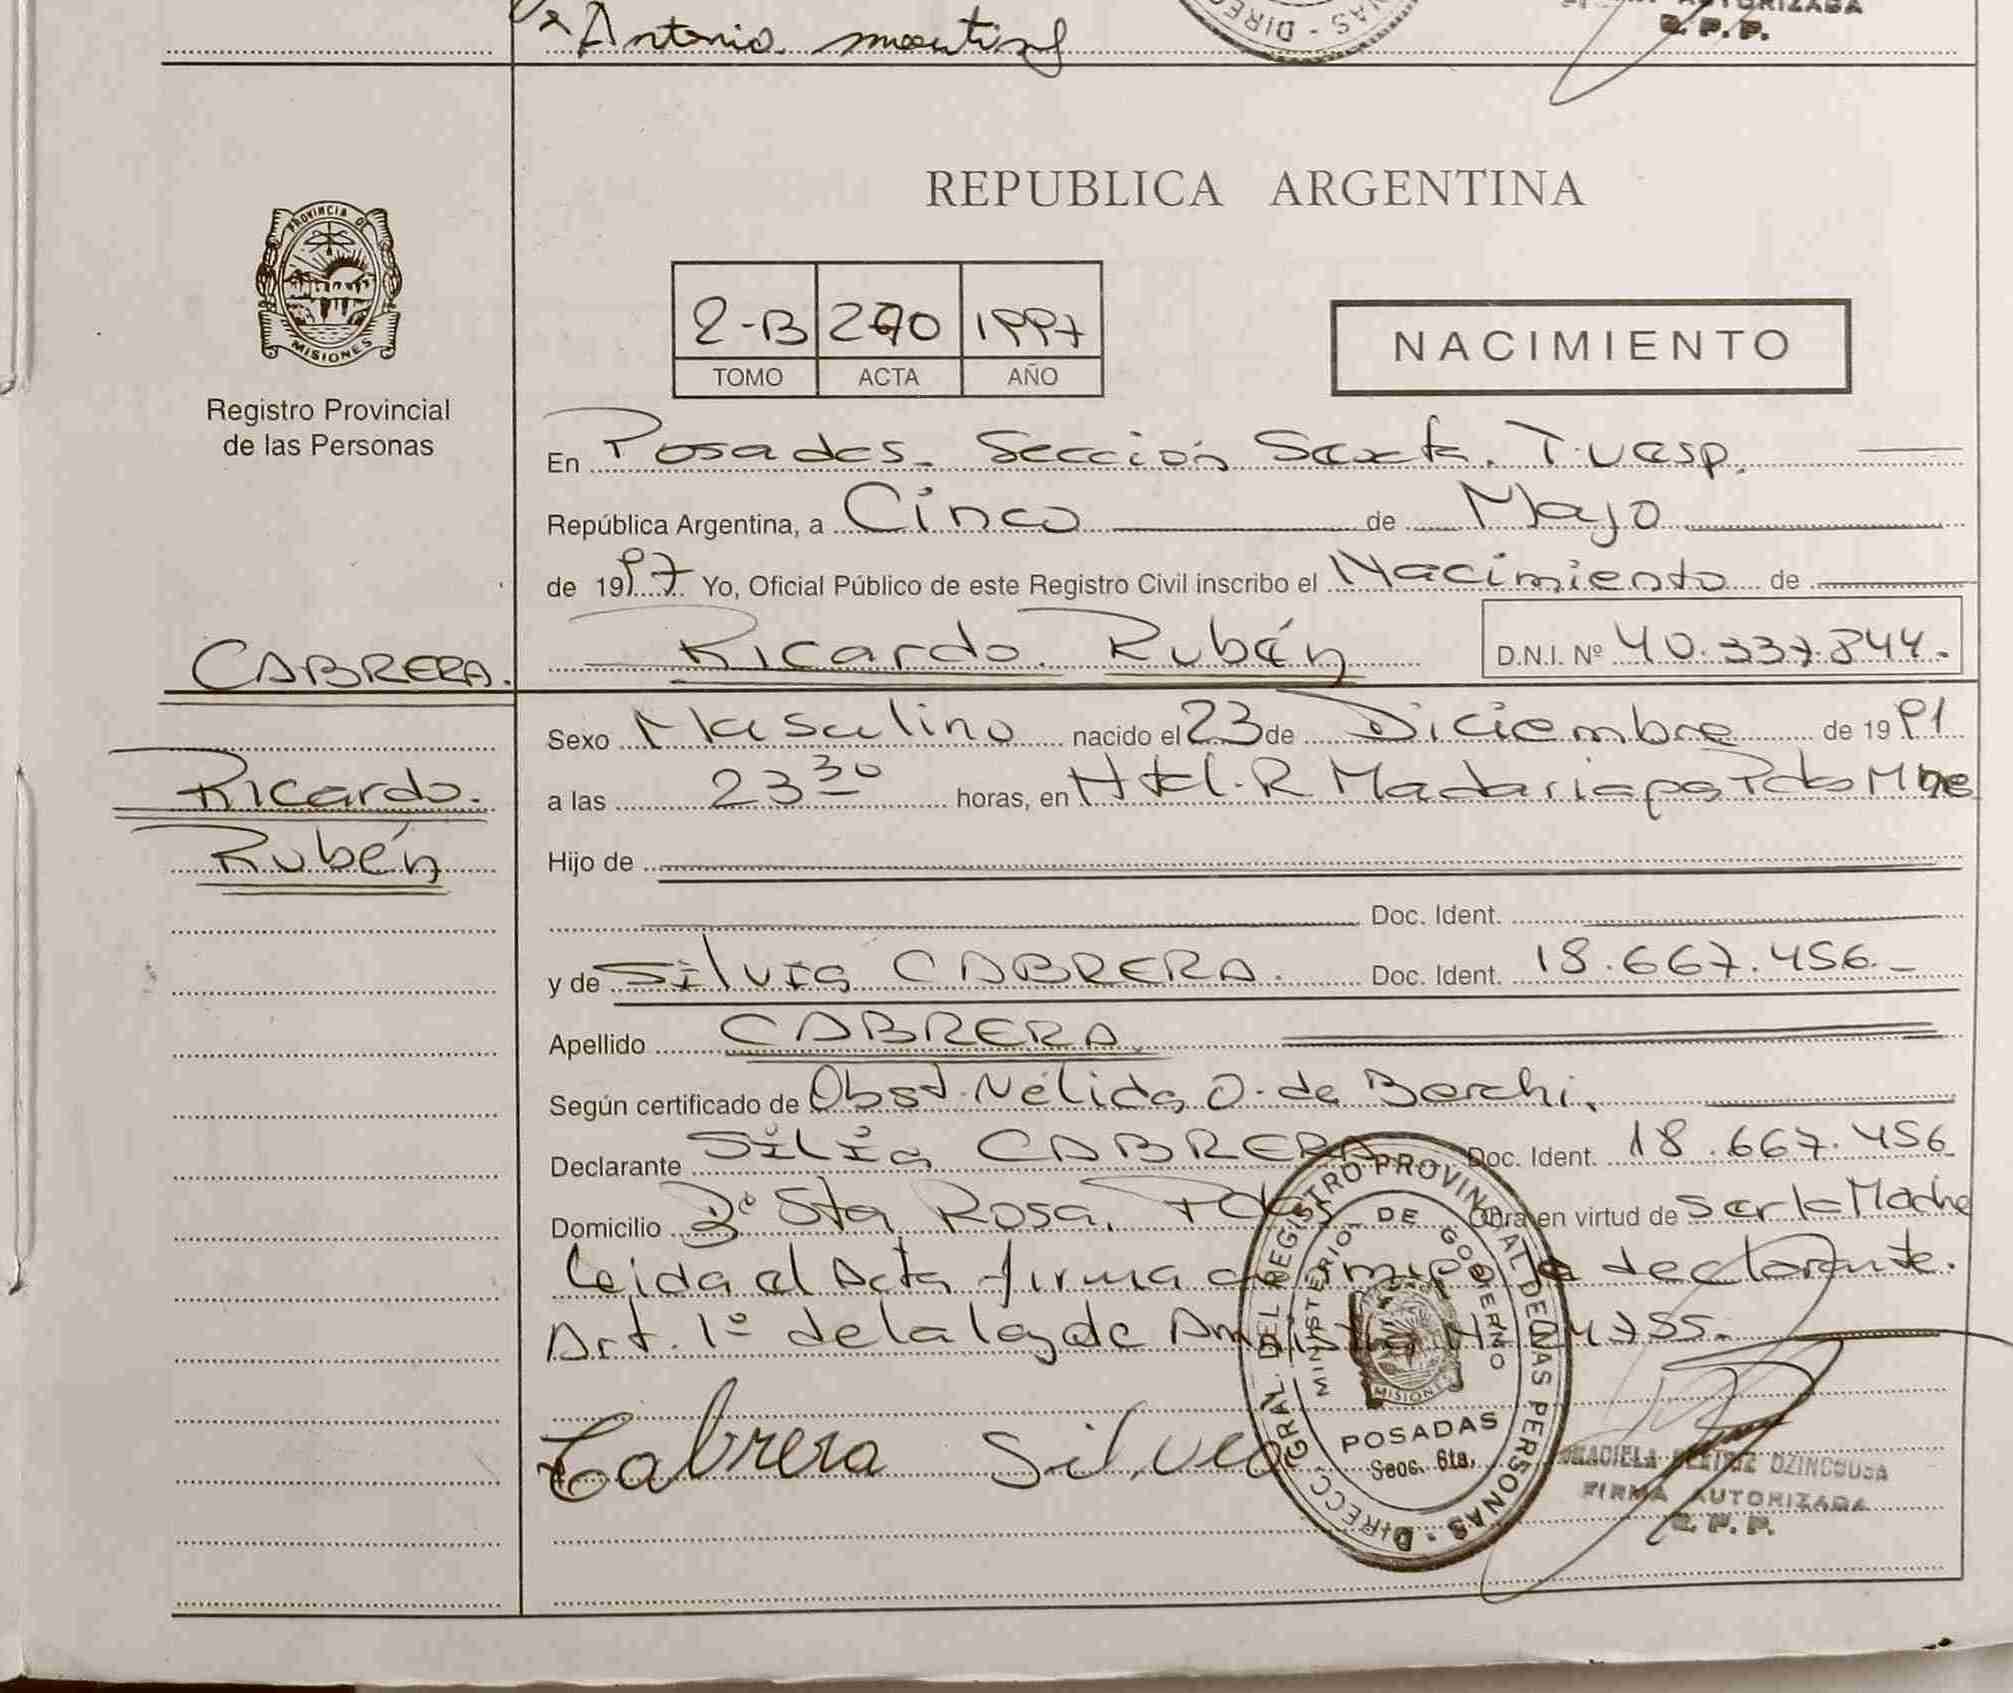 Antonio
DIREC
NAS
AUTORIZADA
R. P. P.
PROVINCIA DE
MISIONES
Registro Provincial
de las Personas
REPUBLICA ARGENTINA
2-B 270 1997
TOMO ACTA AÑO
NACIMIENTO
En Posadas. Sección Sexta. Tuasp.
República Argentina, a Cinco de Mayo
de 1997 Yo, Oficial Público de este Registro Civil inscribo el Nacimiento de
CABRERA. Ricardo Rubén D.N.I. Nº 40.337.844.
Ricardo.
Rubén
Sexo Masculino nacido el 23 de Diciembre de 1991
a las 23 30 horas, en Htal. R Madariaga Pdas Mnes
Hijo de
Doc. Ident.
y de Silvia CABRERA. Doc. Ident. 18.667.456.-
Apellido CABRERA.
Según certificado de Obst. Nélida O. de Berchi.
Declarante Silvia CABRERA Doc. Ident. 18.667.456
Domicilio Bº Sta Rosa. Pdas Obra en virtud de ser la Madre
Leida el Acta firma conmigo la declarante.
Art. 1º de la ley de Amnistia Nº 24755.
Cabrera Silvia
DIRECC. GRAL. DEL REGISTRO PROVINCIAL DE LAS PERSONAS
MINISTERIO DE GOBIERNO
MISIONES
POSADAS
Secc. 6ta.
GRACIELA BEATRIZ DZINCOUSA
FIRMA AUTORIZADA
R. P. P.